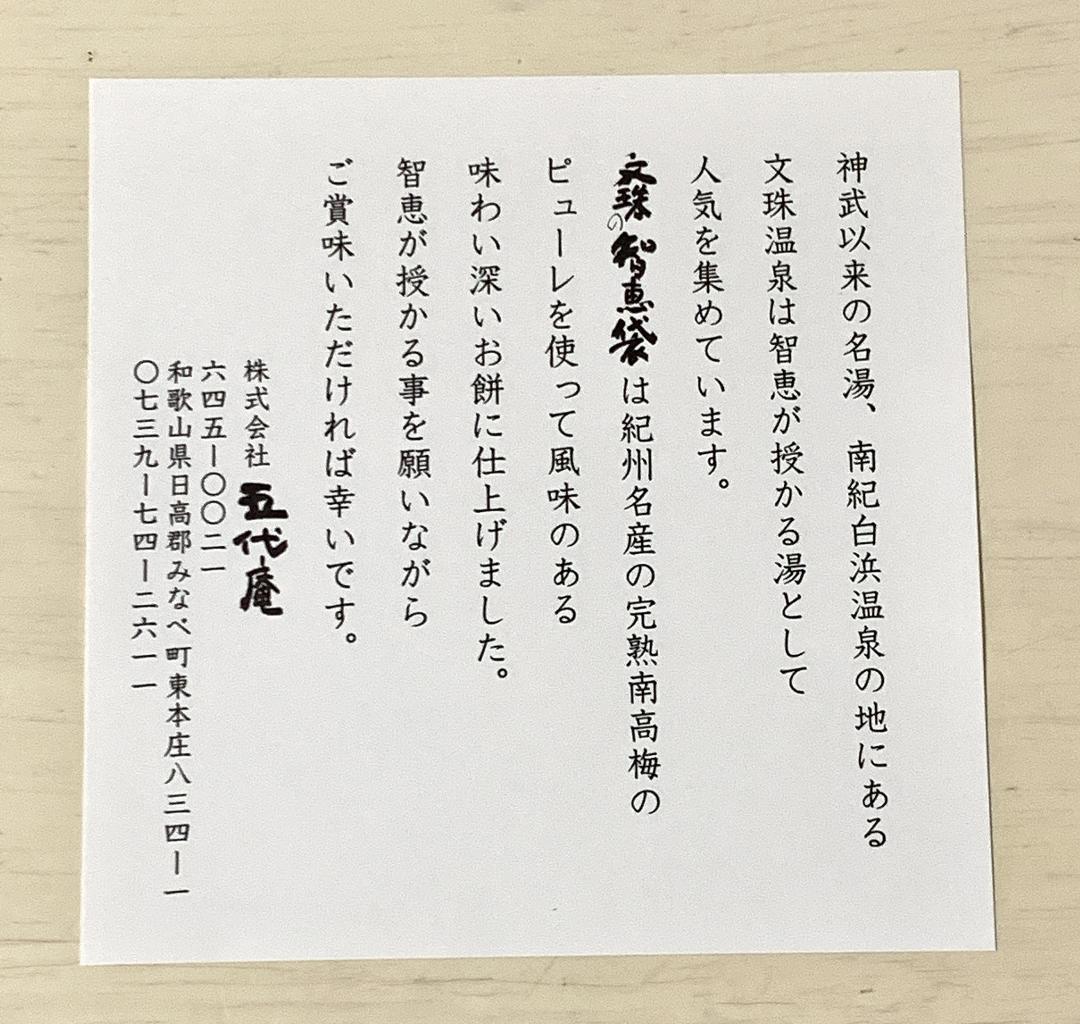 神武以来の名湯、南紀白浜温泉の地にある
文珠温泉は智恵が授かる湯として
人気を集めています。
文珠の智恵袋は紀州名産の完熟南高梅の
ピューレを使って風味のある
味わい深いお餅に仕上げました。
智恵が授かる事を願いながら
ご賞味いただければ幸いです。
株式会社 五代庵
六四五ー〇〇二一
和歌山県日高郡みなべ町東本庄八三四ー一
〇七三九ー七四ー二六一一